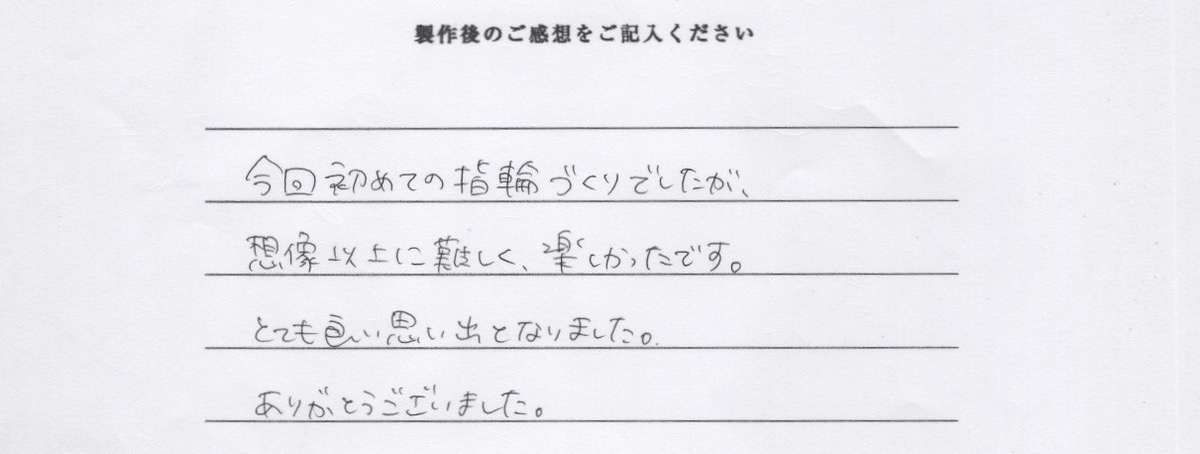 製作後のご感想をご記入ください
今回初めての指輪づくりでしたが、
想像以上に難しく、楽しかったです。
とても良い思い出となりました。
ありがとうございました。